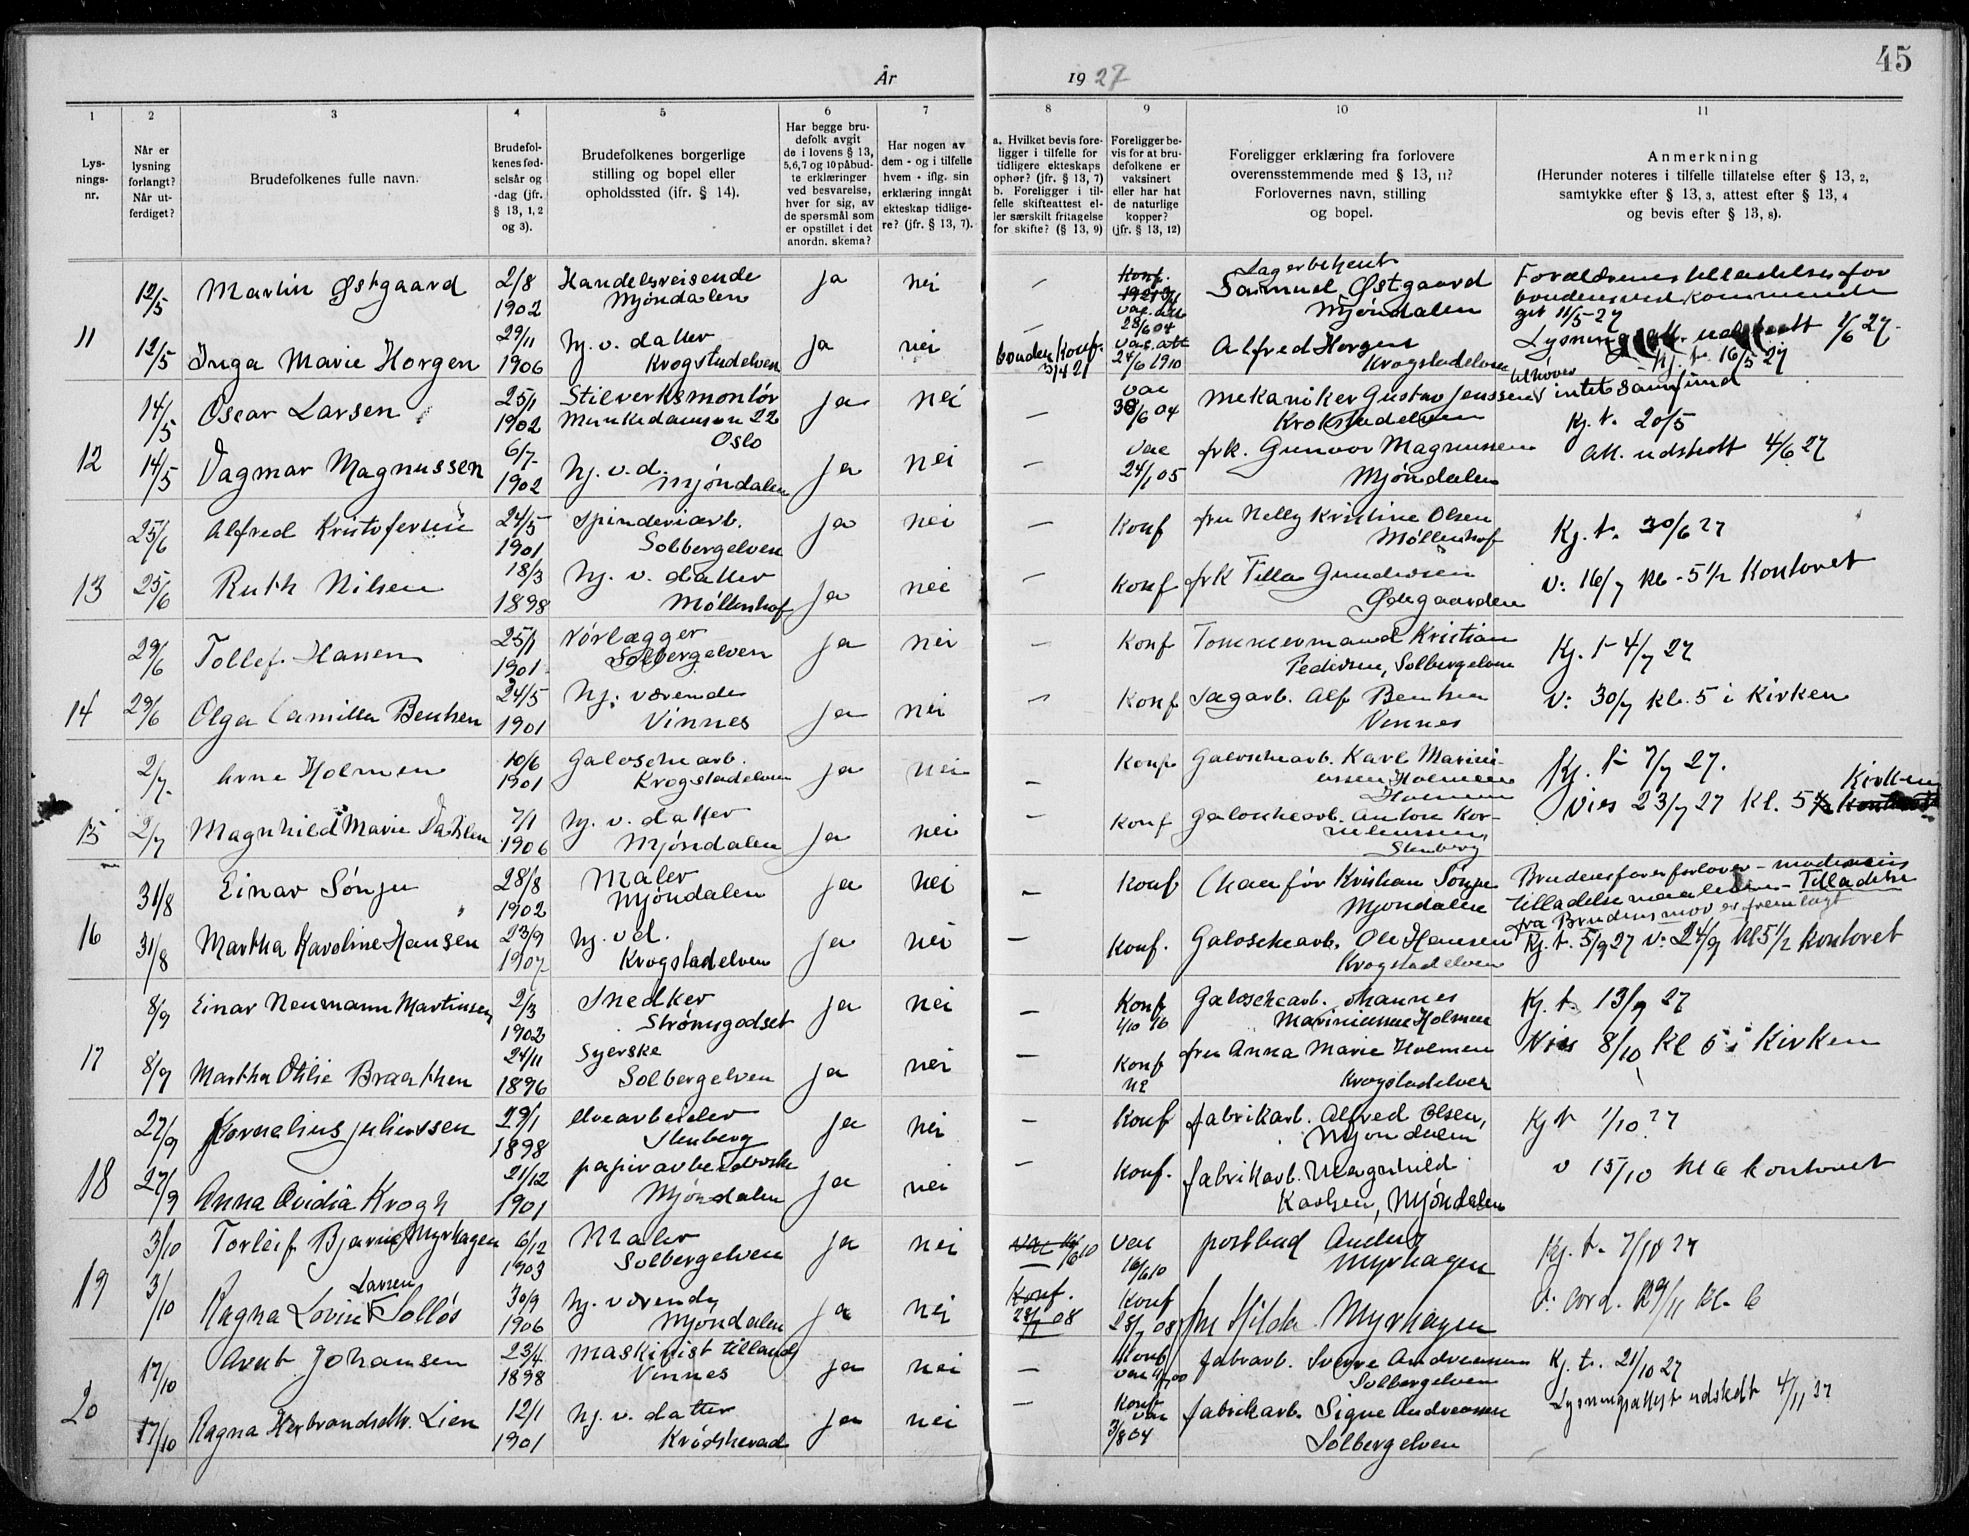 45
År 1927
1 2 3 4 5 6 7 8 9 10 11
Lys-
nings-
nr.
Når er
lysning
forlangt?
Når ut-
ferdiget?
Brudefolkenes fulle navn.
Brudefol-
kenes fød-
selsår og
-dag (jfr.
§ 13, 1, 2
og 3).
Brudefolkenes borgerlige
stilling og bopel eller
opholdssted (ifr. § 14).
Har begge bru-
defolk avgit
de i lovens § 13,
5,6,7 og 10 påbud-
te erklæringer
ved besvarelse,
hver for sig, av
de spørsmål som
er opstillet i det
anordn. skema?
Har nogen av
dem - og i tilfelle
hvem - iflg. sin
erklæring inngåt
ekteskap tidlige-
re? (jfr. § 13, 7).
a. Hvilket bevis fore-
ligger i tilfelle for
tidligere ekteskaps
ophør? (jfr. § 13, 7)
b. Foreligger i til-
felle skifteattest el-
ler særskilt fritagelse
for skifte? (§ 13, 9)
Foreligger be-
vis for at bru-
defolkene er
vaksinert
eller har hat
de naturlige
kopper?
(jfr. § 13, 12)
Foreligger erklæring fra forlovere
overensstemmende med § 13, 11?
Forlovernes navn, stilling
og bopel.
Anmerkning
(Herunder noteres i tilfelle tillatelse efter § 13, 2,
samtykke efter § 13, 3, attest efter § 13, 4
og bevis efter § 13, 8).
12/5 Martin Østgaard 2/8 1902 Handelsreisende Mjøndalen ja nei — Konf. vac. att 28/6 04 Lagerbetjent Samuel Østgaard Mjøndalen
11 12/5 Inga Marie Horgen 29/11 1906 hj. v. datter Krogstadelven ja nei Konf. vac. att 24/6 1910 Alfred Horgen Krogstadelven Lysning att. udstedt 1/6 27. kj. t. 16/5 27
14/5 Oscar Larsen 25/1 1902 Stilverksmontør Munkedamsvn 22 Oslo ja nei — vac 30/6 04 Mekaniker Gustav Jenssen Krokstadelven tilhører intet samfund Kj. t. 20/5
12 14/5 Dagmar Magnussen 6/7 1902 hj. v. d. Mjøndalen ja nei — vac 24/1 05 frk. Gunvor Magnussen Mjøndalen att. udstedt 4/6 27
25/6 Alfred Kristofersen 24/5 1901 Spinderiarb. Solbergelven ja nei — Konf fru Nelly Kristine Olsen Møllenhof Kj. t. 30/6 27
13 25/6 Ruth Nilsen 18/3 1898 hj. v. datter Møllenhof ja nei — Konf frk Tilla Gundersen Ødegaarden v: 16/7 kl - 5 1/2 Kontoret
29/6 Tollef Hansen 25/1 1901 Rørlægger Solbergelven ja nei — Konf Tømmermand Kristian Pedersen, Solbergelven Kj. t 4/7 27
14 29/6 Olga Camilla Bentsen 24/5 1901 hj. værende Vinnes ja nei — Konf Sagarb. Alf Bentsen Vinnes v: 30/7 kl. 5 i Kirken
2/7 Arne Holmen 10/6 1901 Galoschearb. Krogstadelven ja nei — Konf Galoschearb. Karl Marini-
ussen Holmen Holmen Kj. t 7/7 27.
15 2/7 Magnhild Marie Dahlen 7/1 1906 hj. v. datter Mjøndalen ja nei — Konf Galoschearb. Anton Kor-
neliussen, Stenberg Vies 23/7 27 Kl. 5 Kirken
31/8 Einar Sønju 28/8 1902 Maler Mjøndalen ja nei — Konf Chaafør Kristian Sønju Mjøndalen Brudens far er forlover - moderens tilladelse mangler - Tilladelse fra Brudens mor er fremlagt
16 31/8 Martha Karoline Hansen 23/9 1907 hj. v. d. Krogstadelven ja nei — Konf. Galoschearb. Ole Hansen Krogstadelven Kj. t. 5/9 27 v: 24/9 kl 5 1/2 kontoret
8/9 Einar Neumann Martinsen 2/3 1902 Snedker Strømsgodset ja nei — Konf 1/10 16 Galoschearb. Johannes Mariniussen Holmen Kj. t. 13/9 27
17 8/9 Martha Otilie Braathen 24/11 1896 Syerske Solbergelven ja nei — Konf fru Anna Marie Holmen Krogstadelven Vies 8/10 kl 5 i Kirken
27/9 Kornelius Juliussen 29/1 1898 elvearbeider Stenberg ja nei — Konf fabrikarb. Alfred Olsen, Mjøndalen Kj t 1/10 27
18 27/9 Anna Ovidia Krogh 21/12 1901 papirarbeiderske Mjøndalen ja nei — Konf. fabrikarb. Magnhild Karlsen, Mjøndalen v 15/10 kl 6 kontoret
3/10 Torleif Bjarne Myrhagen 6/12 1903 Maler Solbergelven ja nei vac 16/6 10 vac 16/6 10 postbud Anders Myrhagen Kj. t. 7/10 27
19 3/10 Ragna Lovise Larsen Solløs 30/9 1906 hj. værende Mjøndalen ja nei Konf. 28/7 08 Konf 28/7 08 fru Hilda Myrhagen v: lørd. 29/11 kl. 6
17/10 Arent Johansen 23/4 1898 maskinist tillands Vinnes ja nei — Konf vac fabrarb. Sverre Andreassen Solbergelven Kj. t. 21/10 27
20 17/10 Ragna Herbrandsdtr. Lien 12/1 1901 hj. v. datter Krødsherad ja nei — Konf vac 3/8 04 fabrikarb. Signe Andreassen Solbergelven Lysningsattest udstedt 4/11 27